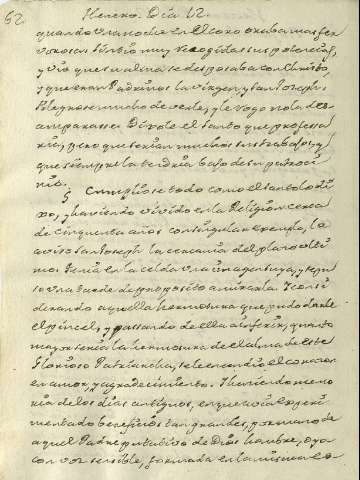 62
Henero. Dia 12.
quando una noche en el Coro orava mas fer
vorosa: sintio muy recogidas sus potencias,
y vio que su alma se desposaba con Christo,
y que eran Padrinos la Virgen, y San Joseph.
Alegrose mucho de verle, y le rogo no la des
amparasse. Dixole el Santo que professa
ria, pero que serian muchos sus trabajos, y
que siempre la tendria bajo de su patroci
nio.
§ Cumpliose todo como el Santo lo di
xo, y haviendo vivido en la Religion cerca
de cinquenta años con singular exemplo, la
aviso San Joseph la cercania del plazo ulti
mo. Tenia en la celda una imagen suya, y se pu
so una tarde de proposito a mirarla. I consi
derando aquella hermosura que pudo darle
el pincel, y passando de ella a inferir, quanto
mayor seria la hermosura de el alma de este
Glorioso Patriarcha, se le encendio el corazon
en amor, y agradecimiento. I haciendo memo
ria de los dias antiguos, en que avia experi
mentado beneficios tan grandes, por mano de
aquel Padre putativo de Dios hombre, oyo
con voz sensible, formada en la misma ea